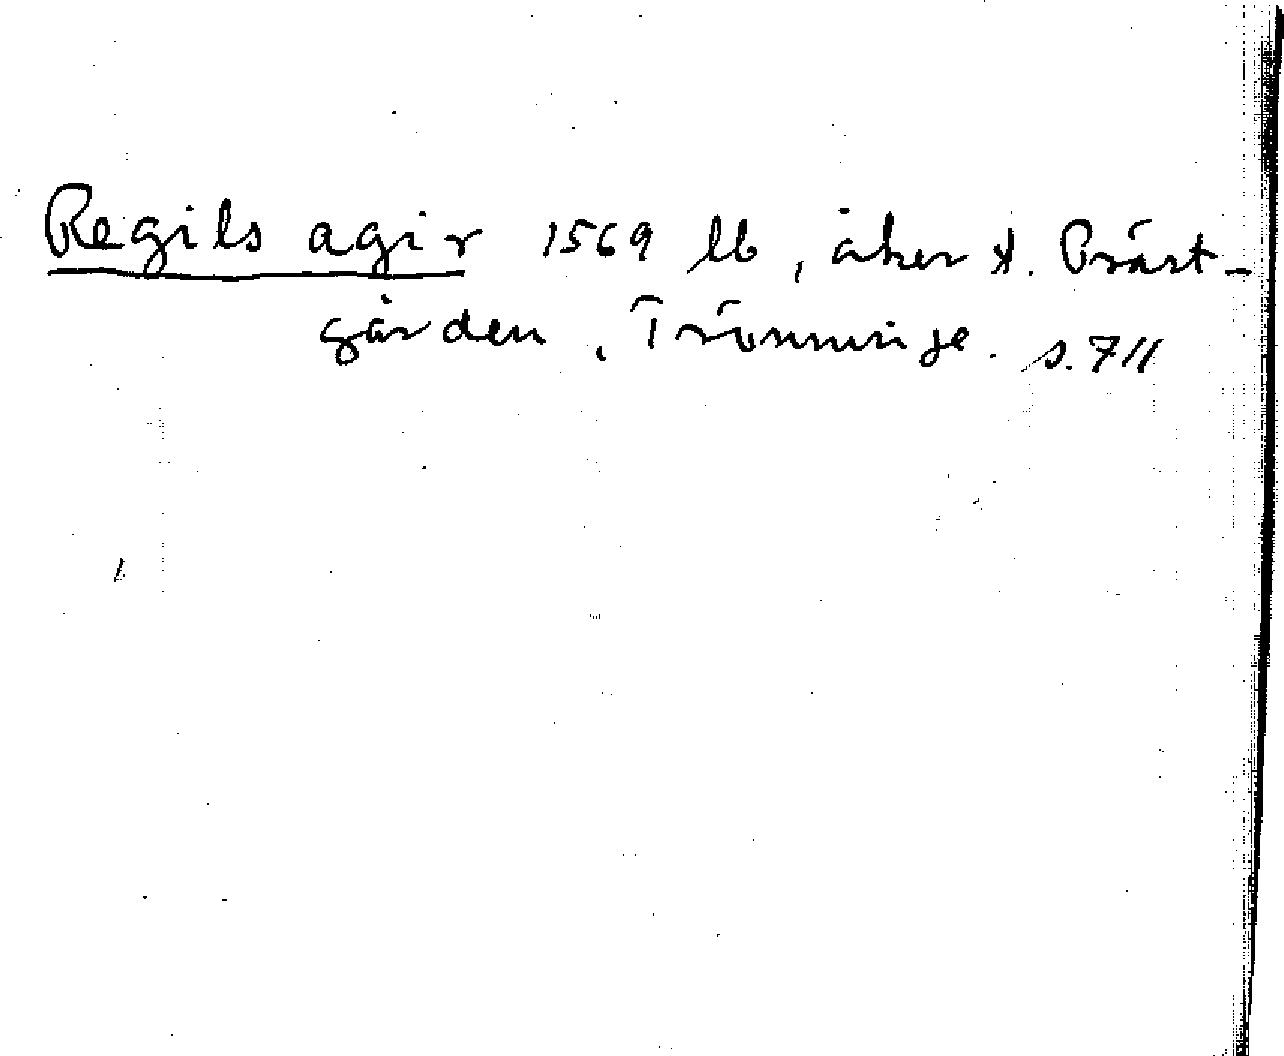 Regils agir 1569 lb, åker t. Präst-
gården, Trönninge. s. 711